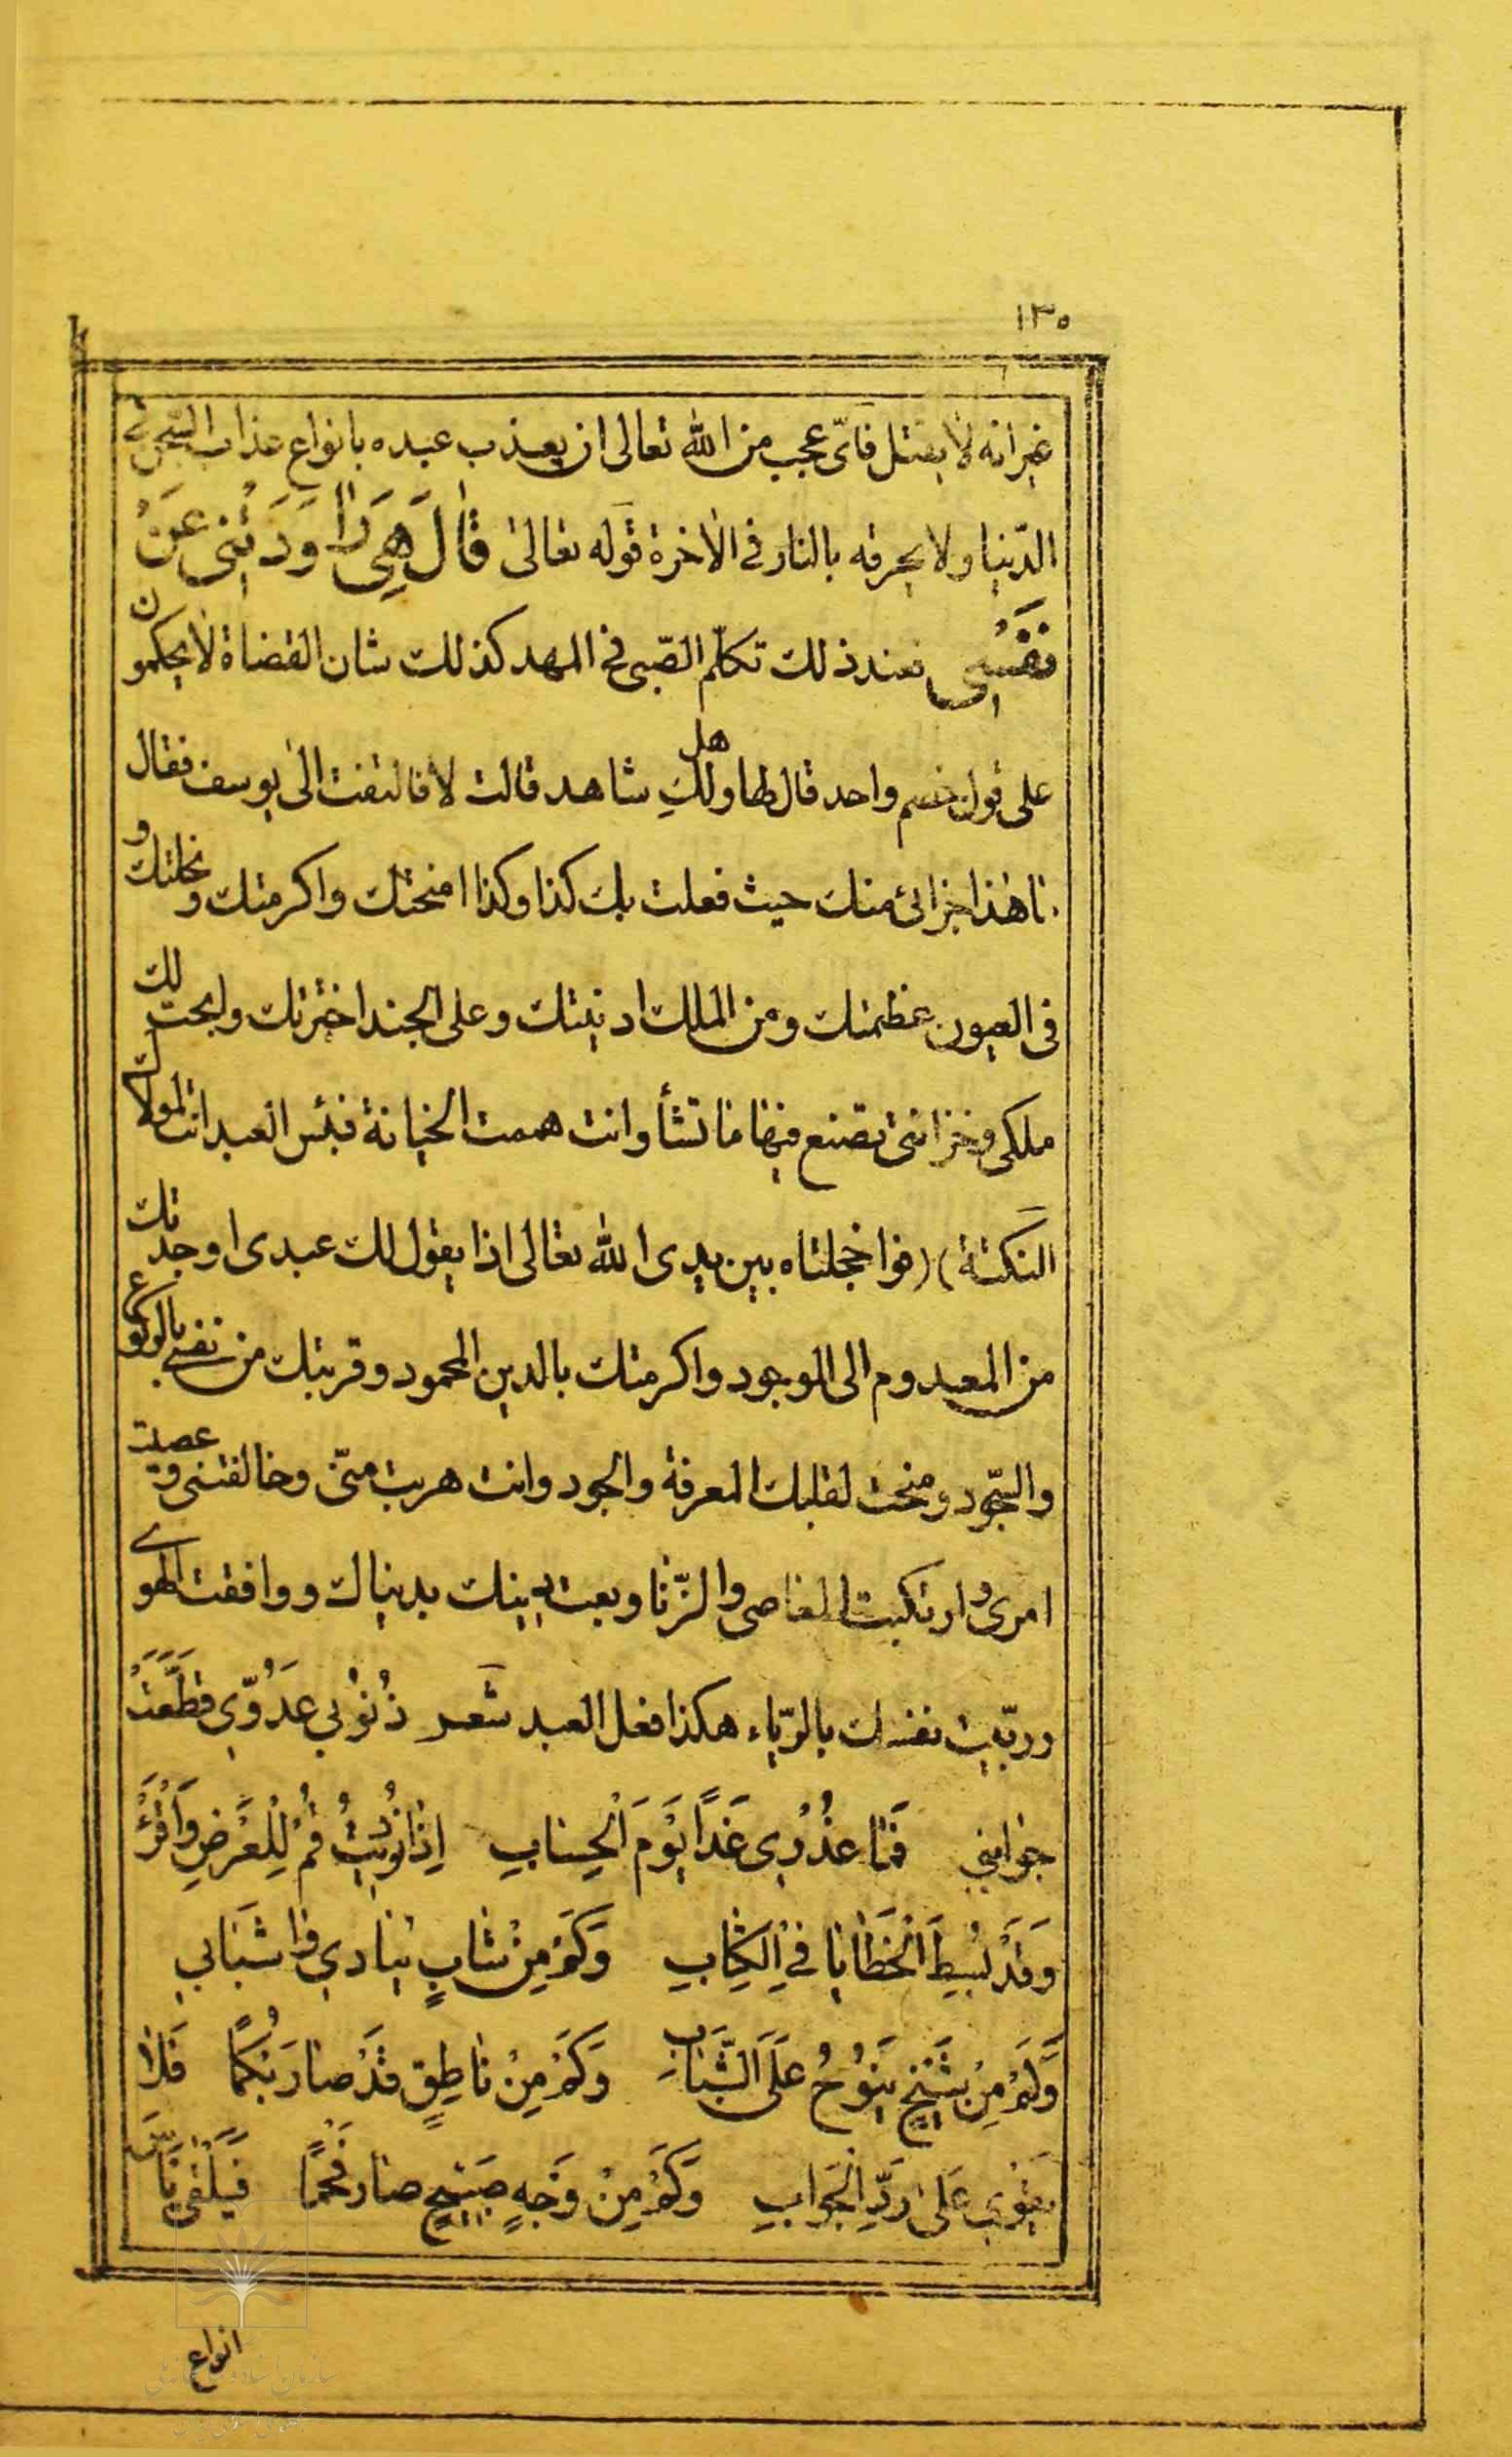 ١٣٥
غير انه لا يقتل فاىّ عجب من الله تعالى ان يعذب عبده بانواع عذاب السّجن فى
الدّنيا ولا يحرقه بالنار فى الاخرة قوله تعالى قٰالَ هِىَ رٰاوَدَتْنِى عَنْ
نَفْسِى فعند ذلك تكلّم الصّبى فى المهد كذلك شان القضاة لا يحكمون
على قول خصم واحد قال لها وهل لك شاهد قالت لا فالتفت الى يوسف فقال
ما هذا جزائى منك حيث فعلت بك كذا وكذا امنحتك واكرمتك و ونحلتك
فى العيون عظمتك ومن الملك ادنيتك وعلى الجند اخترتك وابحت لك
ملكى وخزانتى تصنع فيها ما تشأ وانت هممت الخيانة فبئس العبد انت لمولاك
النكتة) (فواخجلتاه بين يدى الله تعالى اذا يقول لك عبدى اوجدتك
من المعدوم الى الموجود واكرمتك بالدين المحمود وقربتك من نفسى بالركوع
والسّجود ومنحت لقلبك المعرفة والجود وانت هربت منّى وخالفتنى وعصيت
امرى وارتكبت المعاصى والزّنا وبعت دينك بدنياك ووافقت الهوى
وربّيت نفسك بالرّياء هكذا فعل العبد شعر ذُنُوْبي عَدُوّي قَطَّعَتْ
جوابيني فَمٰا عُذْرِي غَدًا يَوْمَ الْحِسٰابِ اِذٰا نُوْدِيْتُ قُمْ لِلْعَرْضِ وَاقْرَءْ
وَقَدْ بُسِطَ الْخَطٰايٰا فِي الْكِتٰابِ وَكَمْ مِنْ شٰابٍ يُنٰادِي وٰا شَبٰابي
وَكَمْ مِنْ شَيْخٍ يَنُوْحُ عَلَى الشَّبٰابِ وَكَمْ مِنْ نٰاطِقٍ قَدْ صٰارَ بُكْمًا فَلٰا
يَقْوِي عَلىٰ رَدِّ الْجَوٰابِ وَكَمْ مِنْ وَجْهٍ صَبِيْحٍ صٰارَ فَحْمًا فَيَلْقىٰ نٰاسَ
انواع